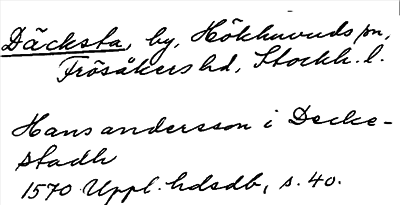 Däcksta, by, Hökhuvuds sn,
Frösåkers hd, Stockh. l.
Hans andersson i Decke-
stadh
1570 Uppl. hdsdb, s. 40.